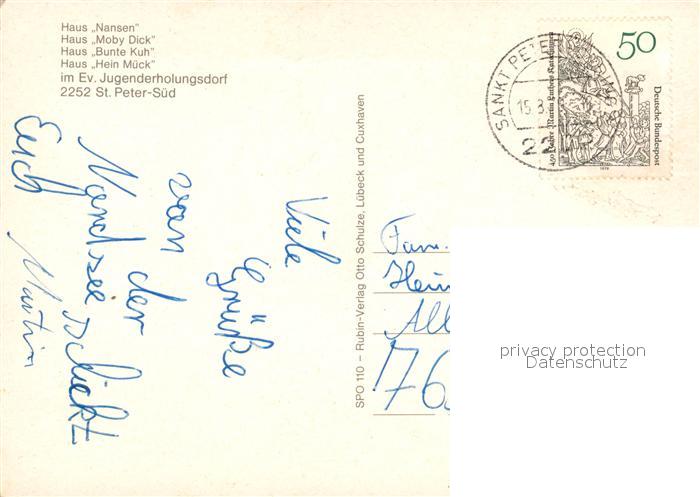 Haus „Nansen“
Haus „Moby Dick“
Haus „Bunte Kuh“
Haus „Hein Mück“
im Ev. Jugenderholungsdorf
2252 St. Peter-Süd
Viele
Grüße
von der
Nordsee schickt
Euch
Martin
SPO 110 – Rubin-Verlag Otto Schulze, Lübeck und Cuxhaven
SANKT PETER
15.8.
22
50
Deutsche Bundespost
450 Jahre Martin Luthers Katechismus
1979
Fam.
Hein
All
76
privacy protection
Datenschutz